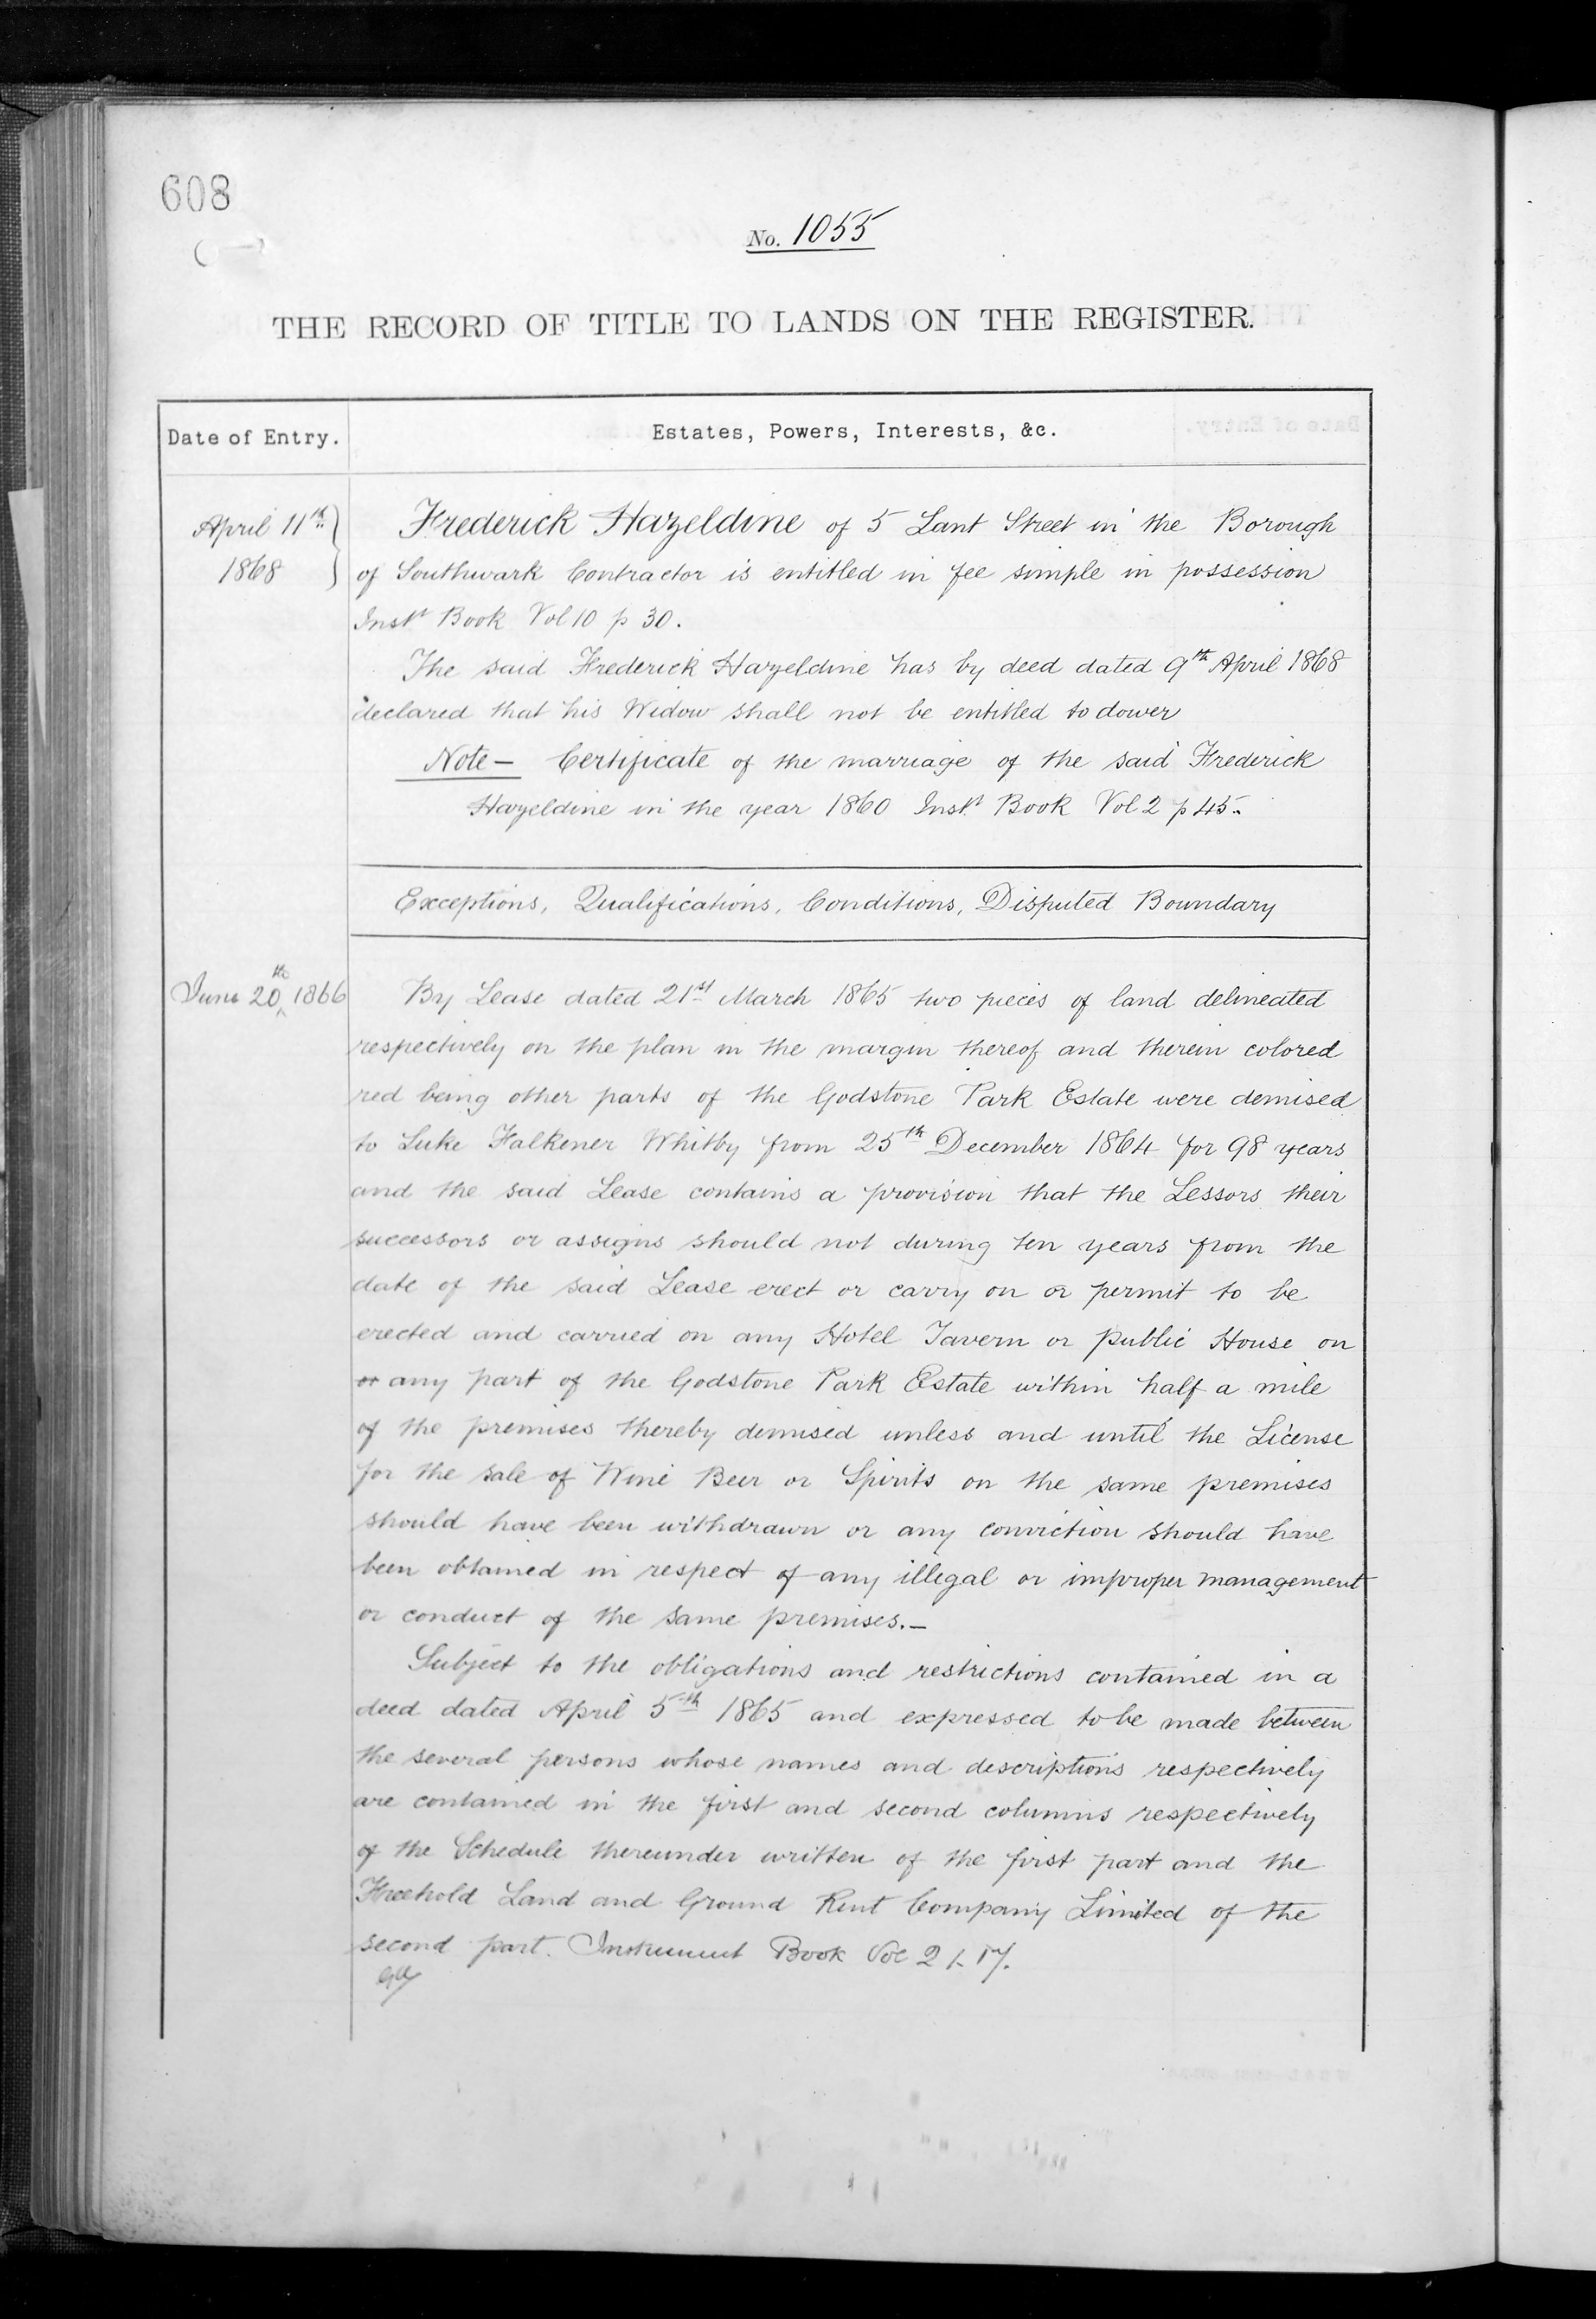 608
No. 1055
THE RECORD OF TITLE TO LANDS ON THE REGISTER.
Date of Entry.
Estates, Powers, Interests, &c.
April 11th
1868
Frederick Hazeldine of 5 Lant Street in the Borough
of Southwark Contractor is entitled in fee simple in possession
Inst Book Vol 10 p 30.
The said Frederick Hazeldine has by deed dated 9th April 1868
declared that his Widow shall not be entitled to dower
Note - Certificate of the marriage of the said Frederick
Hazeldine in the year 1860 Inst Book Vol 2 p 45.
Exceptions, Qualifications, Conditions, Disputed Boundary
June 20th 1866
By Lease dated 21st March 1865 two pieces of land delineated
respectively on the plan in the margin thereof and therein colored
red being other parts of the Godstone Park Estate were demised
to Luke Falkener Whitby from 25th December 1864 for 98 years
and the said Lease contains a provision that the Lessors their
successors or assigns should not during ten years from the
date of the said Lease erect or carry on or permit to be
erected and carried on any Hotel Tavern or public House on
or any part of the Godstone Park Estate within half a mile
of the premises thereby demised unless and until the License
for the sale of Wine Beer or Spirits on the same premises
should have been withdrawn or any conviction should have
been obtained in respect of any illegal or improper management
or conduct of the same premises.-
Subject to the obligations and restrictions contained in a
deed dated April 5th 1865 and expressed to be made between
the several persons whose names and descriptions respectively
are contained in the first and second columns respectively
of the Schedule thereunder written of the first part and the
Freehold Land and Ground Rent Company Limited of the
second part. Instrument Book Vol 2 p. 17.